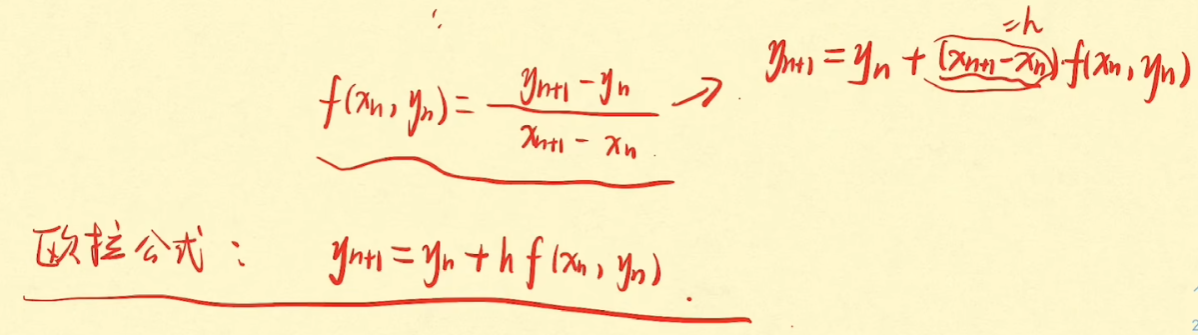 ∴
f(xₙ, yₙ) = (yₙ₊₁ - yₙ)/(xₙ₊₁ - xₙ) → yₙ₊₁ = yₙ + (xₙ₊₁ - xₙ)·f(xₙ, yₙ)
=h
欧拉公式: yₙ₊₁ = yₙ + h f(xₙ, yₙ).